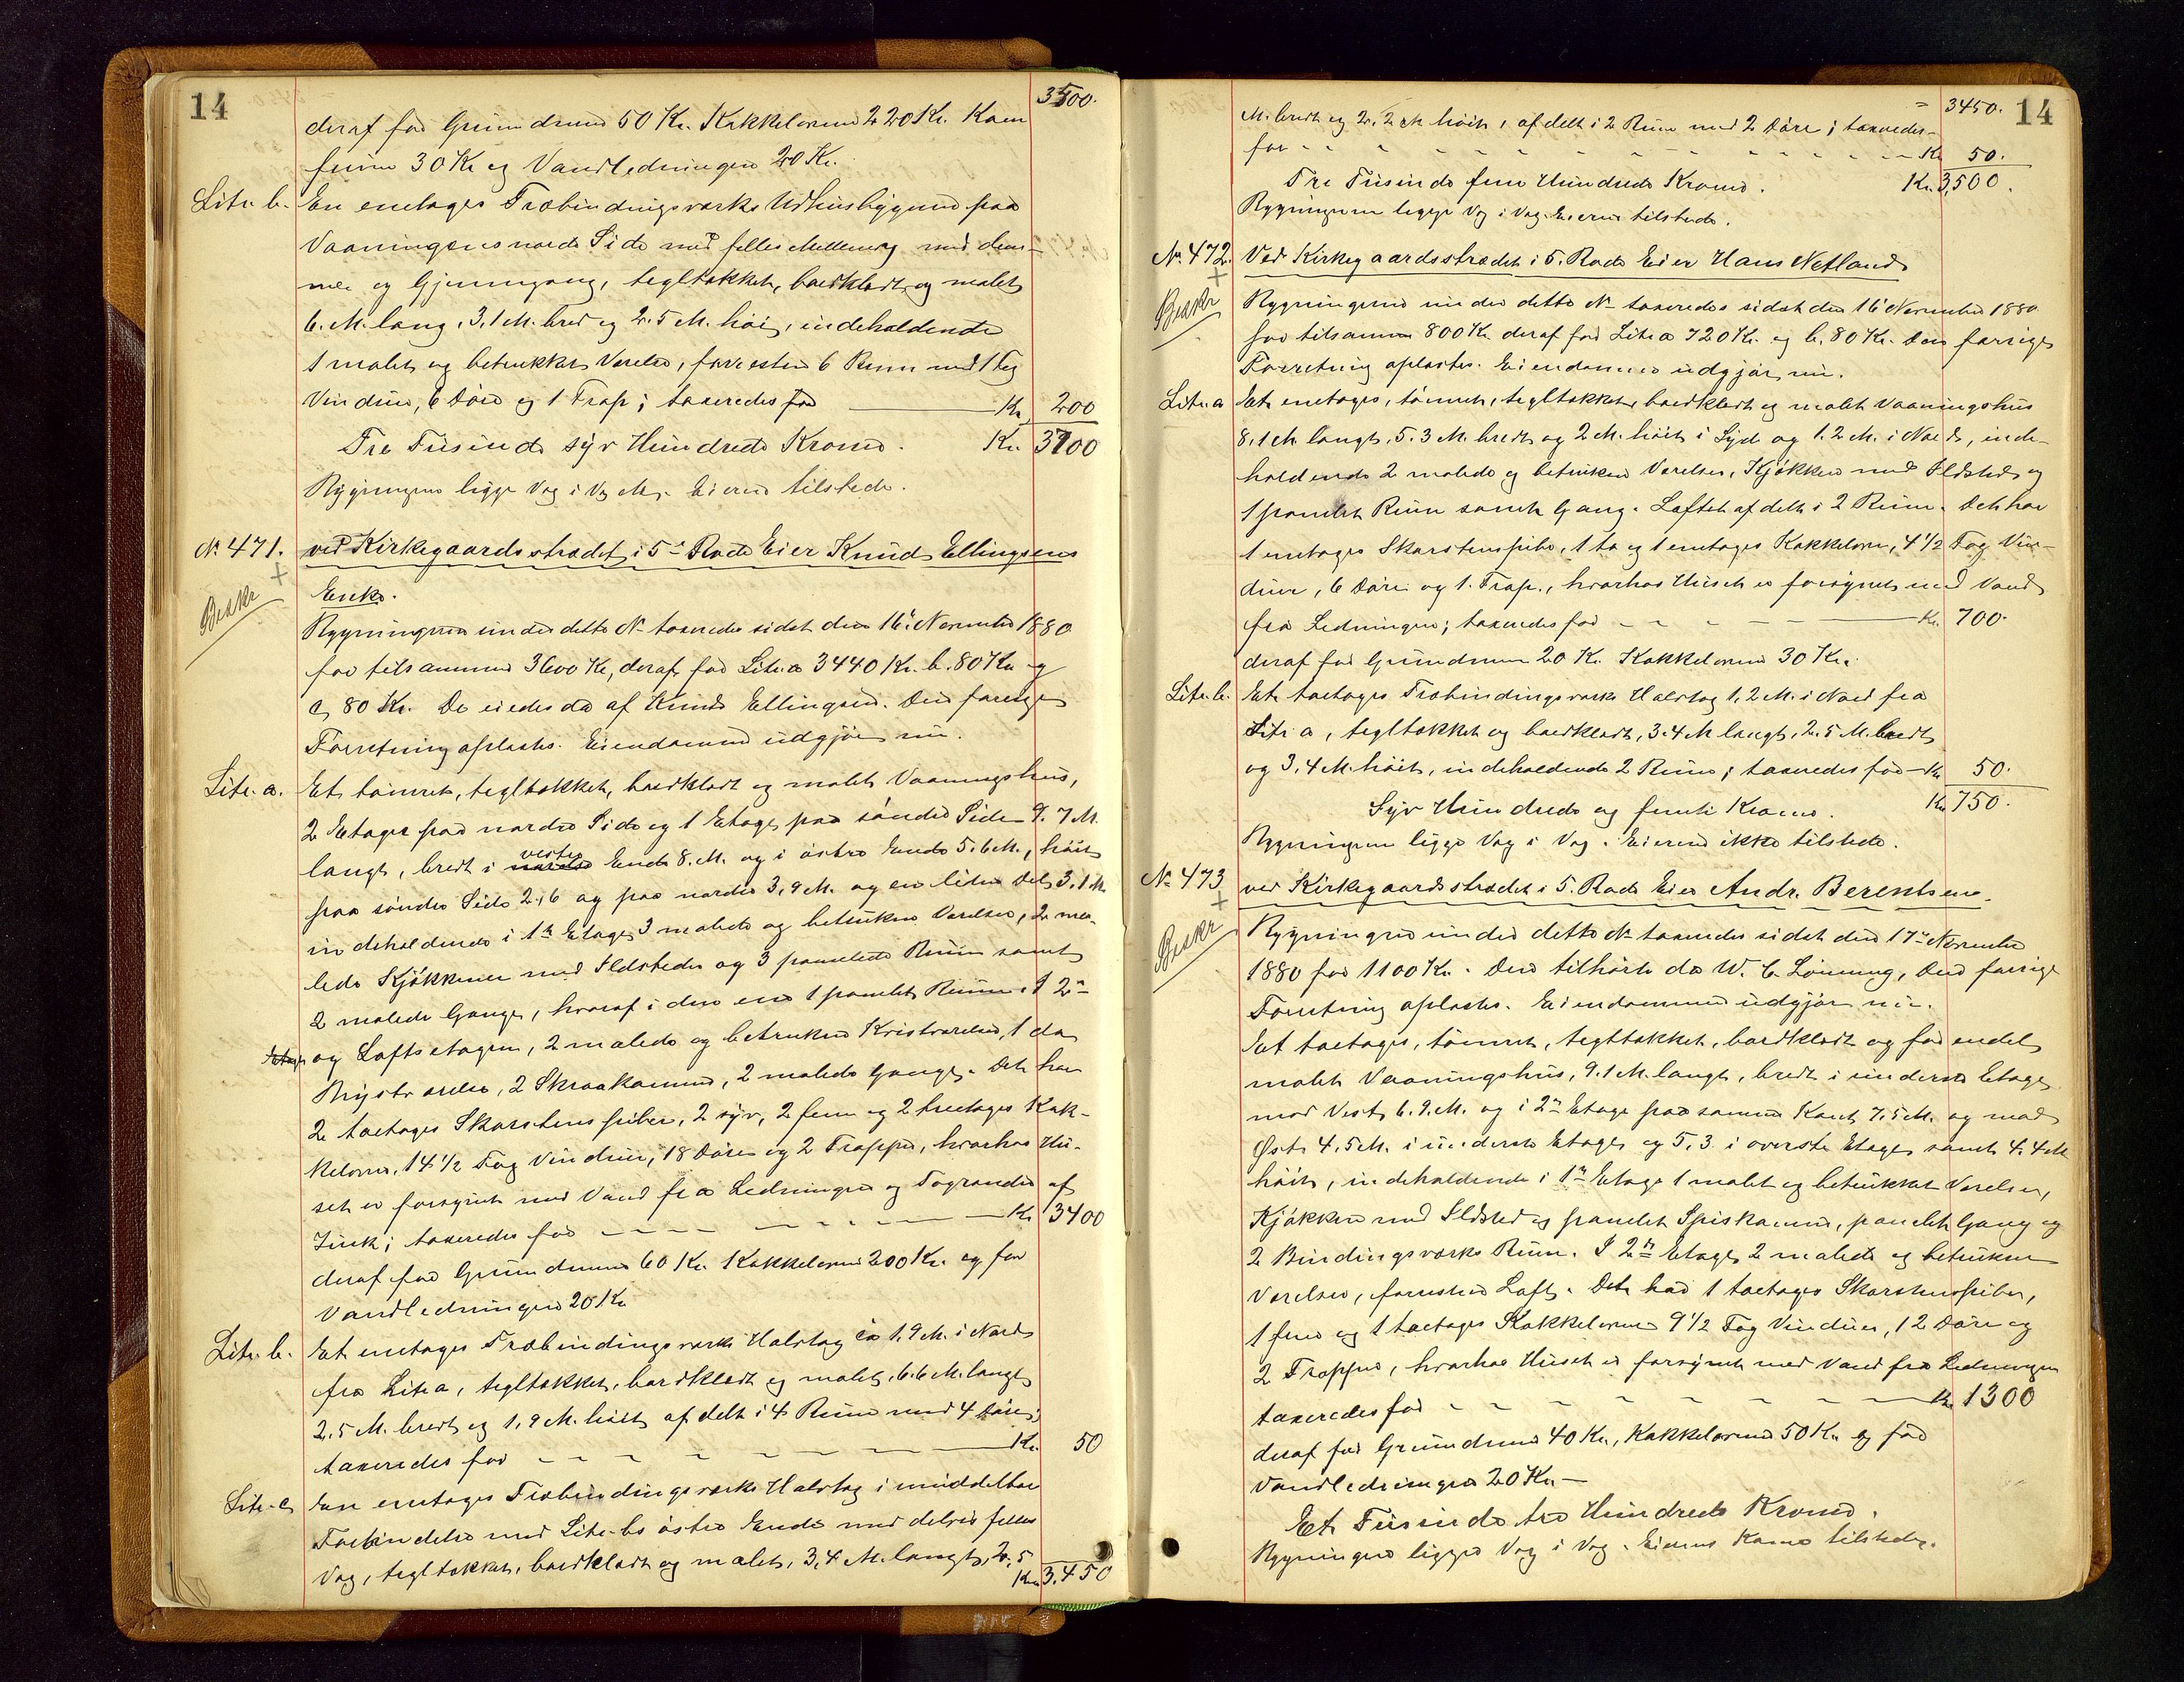 14
3500.
deraf for Grundmur 50 Kr. Kakkelovne 220 Kr. Kom
furer 30 Kr og Vandledningen 20 Kr.
Litr. b. En enetages Træbindingsværks Udhusbygning paa
Vaaningens nordre Side med felles Mellemvæg med den-
ne og Gjennemgang, tegltækket, bordklædt og malet
6. M. lang, 3,1 M. bred og 2.5 M. høi, indeholdende
1 malet og betrukket Værelse, forresten 6 Rum med 1 Fag
Vinduer, 6 Døre og 1 Trap; taxeredes for Kr. 200
Tre Tusinde syv Hundrede Kroner. Kr. 3700
Bygningerne ligge Væg i Væg. Eieren tilstede.
No. 471. ved Kirkegaardsstrædet i 5te Rode Eier Knud Ellingsens
Beskr
Enke.
Bygningerne under dette No taxeredes sidst den 16de November 1880
for tilsammen 3600 Kr, deraf for Litr. a 3440 Kr. b. 80 Kr og
c, 80 Kr. De eiedes da af Knud Ellingsen. Den forrige
Forretning oplæstes. Eiendommen udgjør nu.
Litr. a. Et tømret, tegltækket, bordklædt og malet Vaaningshus,
2 Etager paa nordre Side og 1 Etage paa søndre Side 9.7 M.
langt, bredt i vestre Ende 8. M. og i østre Ende 5.6 M., høit
paa søndre Side 2,6 og paa nordre 3,9 M. og en liden Del 3.1 M
indeholdende i 1te Etage 3 malede og betrukne Værelser, 2 ma-
lede Kjøkkener med Ildsteder og 3 panelede Rum samt
2 malede Gange, hvoraf i den ene 1 panelet Rum. I 2den
Etage og Loftsetagen, 2 malede og betrukne Kvistværelser, 1 do
Brystværelse, 2 Skraakammer, 2 malede Gange. Det har
2 toetages Skorstenspiber, 2 syv, 2 fem og 2 treetages Kak-
kelovne, 14 1/2 Fag Vinduer, 18 Døre og 2 Trapper, hvorhos Hu-
set er forsynet med Vand fra Ledningen og Tagrender af
Zink; taxeredes for Kr. 3400
deraf for Grundmuren 60 Kr. Kakkelovne 200 Kr. og for
Vandledningen 20 Kr
Litr. b. Et enetages Træbindingsværks Halvtag ca 1.9 M. i Nord
fra Litr a, tegltækket, bordklædt og malet, 6.6 M. langt
2.5 M. bredt og 1,9 M. høit afdelt i 4 Rum med 4 Døre;
taxeredes for Kr. 50
Litr. c Een enetages Træbindingsværks Halvtag i umiddelbar
Forbindelse med Litr. bs østre Ende med delvis felles
Væg, tegltækket, bordklædt og malet, 3,4 M. langt, 2,5
Kr. 3,450
14
3450.
M. bredt og 2.2 M høit, afdelt i 2 Rum med 2 Døre; taxeredes
for Kr 50.
Tre Tusinde fem Hundrede Kroner. Kr. 3,500.
Bygningerne ligge Væg i Væg. Eieren tilstede.
No. 472. Ved Kirkegaardsstrædet i 5. Rode Eier Hans Netland
Beskr
Bygningerne under dette No taxeredes sidst den 16de November 1880
for tilsammen 800 Kr. deraf for Litr a 720 Kr. og b. 80 Kr. Den forrige
Forretning oplæstes. Eiendommen udgjør nu.
Litr. a Et enetages, tømret, tegltækket, bordklædt og malet Vaaningshus
8,1 M. langt, 5.3 M. bredt og 2 M. høit i Syd og 1.2 M. i Nord, inde-
holdende 2 malede og betrukne Værelser, Kjøkken med Ildsted og
1 panelet Rum samt Gang. Loftet afdelt i 2 Rum. Det har
1 enetages Skorstenspibe, 1 to og 1 enetages Kakkelovn, 4 1/2 Fag Vin-
duer, 6 Døre og 1. Trap., hvorhos Huset er forsynet med Vand
fra Ledningen; taxeredes for Kr. 700.
deraf for Grundmur 20 Kr. Kakkelovne 30 Kr.
Litr. b. Et toetages Træbindingsværks Halvtag 1,2 M. i Nord fra
Litr a, tegltækket og bordklædt, 3.4 M langt, 2.5 M. bredt
og 3,4 M. høit, indeholdende 2 Rum; taxeredes for Kr 50.
Syv Hundrede og femti Kroner. Kr 750.
Bygningerne ligge Væg i Væg. Eieren ikke tilstede.
No 473 ved Kirkegaardsstrædet i 5. Rode Eier Andr. Berentsen.
Beskr
Bygningen under dette No taxeredes sidst den 17de November
1880 for 1100 Kr. Den tilhørte da W. C Lönning, Den forrige
Forretning oplæstes. Eiendommen udgjør nu.
Et toetages, tømret, tegltækket, bordklædt og for endel
malet Vaaningshus, 9.1 M. langt, bredt i underste Etage
mod Vest 6.9. M. og i 2den Etage paa samme Kant 7,5 M. og mod
Øst 4,5 M. i underste Etage og 5,3 i øverste Etage samt 4.4 M
høit, indeholdende i 1te Etage 1 malet og betrukket Værelse,
Kjøkken med Ildsted og panelet Spiskammer, panelet Gang og
2 Bindingsværks Rum. I 2den Etage 2 malede og betrukne
Værelser, forresten Loft. Det har 1 toetages Skorstenspiber,
1 fem og 1 toetages Kakkelovne 9 1/2 Fag Vinduer, 12 Døre og
2 Trapper, hvorhos Huset er forsynet med Vand fra Ledningen
taxeredes for Kr. 1300
deraf for Grundmur 40 Kr., Kakkelovne 50 Kr og for
Vandledningen 20 Kr —
Et Tusinde tre Hundrede Kroner.
Bygningen ligger Væg i Væg. Eierens Kone tilstede.